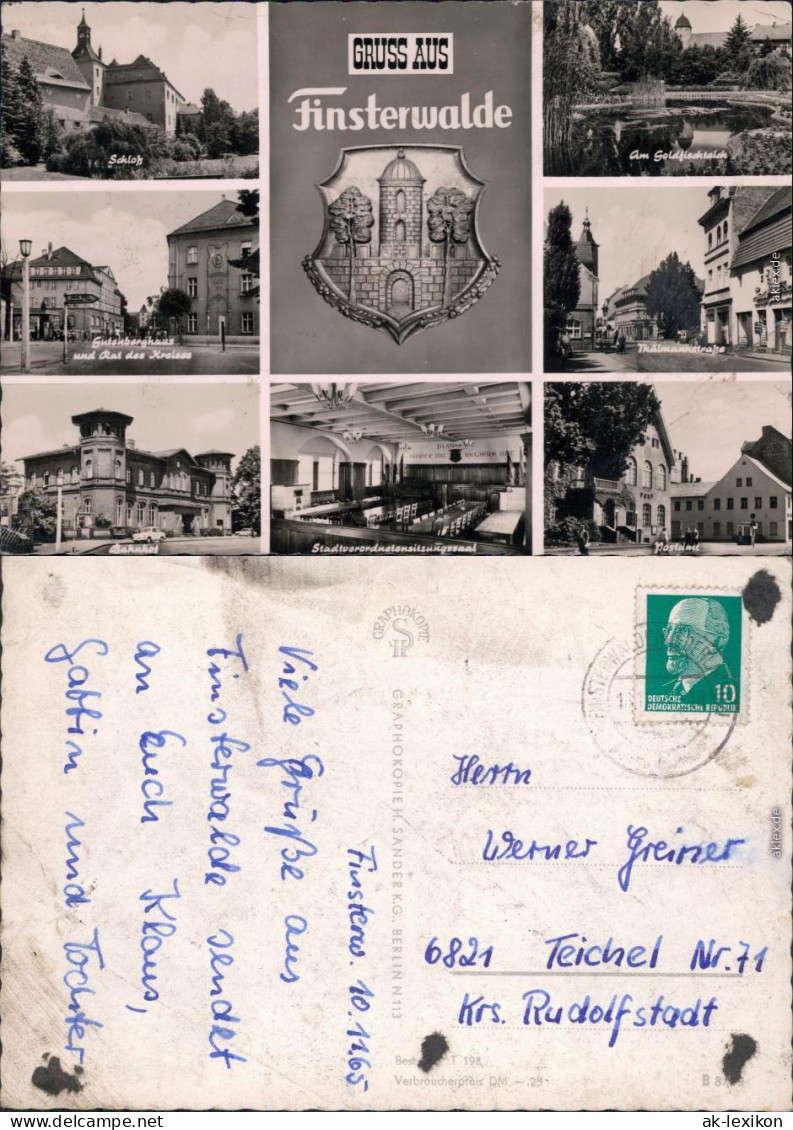 GRUSS AUS
Finsterwalde
Schloß
Am Goldfischteich
Gutenberghaus
und Rat des Kreises
Thälmannstraße
Bahnhof
Stadtverordnetensitzungssaal
Postamt
akiex.de
Finsterw. 10.11.65
Viele Grüße aus
Finsterwalde sendet
an Euch Klaus,
Gattin und Tochter
GRAPHOKOPIE
GRAPHOKOPIE H. SANDER K.G., BERLIN N 113
FINSTERWALDE
DEUTSCHE
DEMOKRATISCHE REPUBLIK
10
Herrn
Werner Greiner
6821 Teichel Nr. 71
Krs. Rudolfstadt
T 198
Verbraucherpreis DM —.25
akiex.de
ak-lexikon